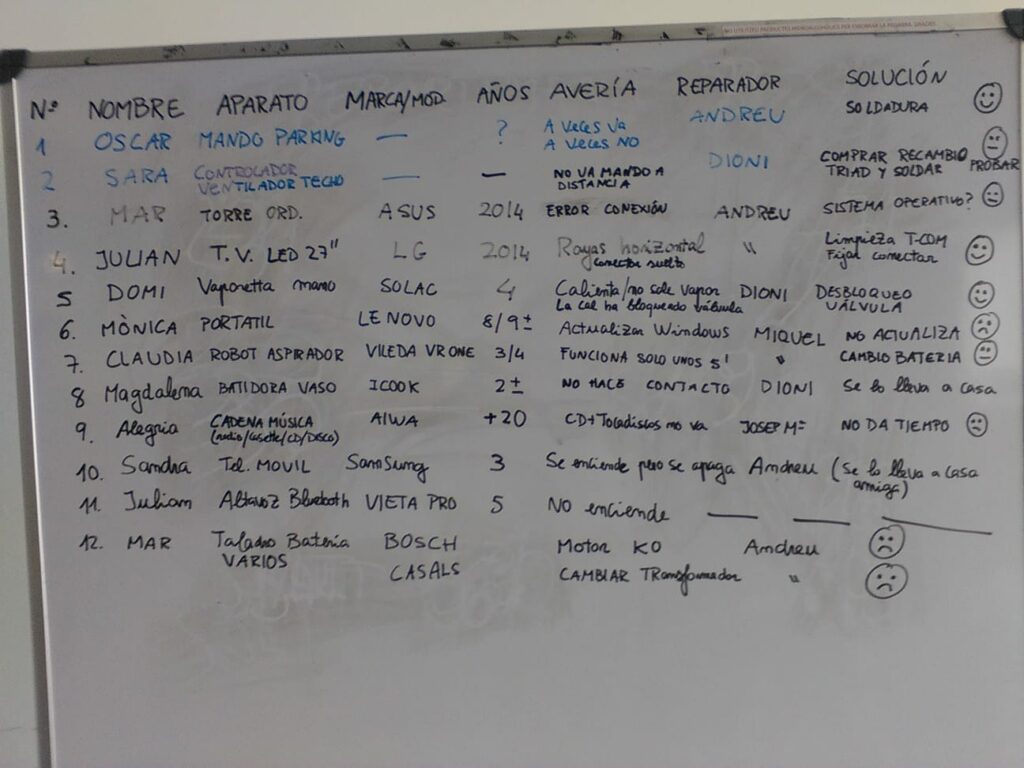 NO UTILITZEU PRODUCTES
Nº NOMBRE APARATO MARCA/MOD. AÑOS AVERÍA REPARADOR SOLUCIÓN
1 OSCAR MANDO PARKING — ? A veces va A veces NO ANDREU SOLDADURA
2 SARA CONTROLADOR VENTILADOR TECHO — — NO VA MANDO A DISTANCIA DIONI COMPRAR RECAMBIO TRIAD Y SOLDAR PROBAR
3. MAR TORRE ORD. ASUS 2014 ERROR CONEXIÓN ANDREU SISTEMA OPERATIVO?
4. JULIAN T.V. LED 27" LG 2014 Rayas horizontal conector suelto " Limpieza T-COM Fijar conectar
5 DOMI Vaporetta mano SOLAC 4 Calienta/no sale vapor La cal ha bloqueado válvula DIONI DESBLOQUEO VÁLVULA
6. MÒNICA PORTATIL LENOVO 8/9± Actualizar Windows MIQUEL NO ACTUALIZA
7. CLAUDIA ROBOT ASPIRADOR VILEDA VR ONE 3/4 FUNCIONA SOLO UNOS 5' " CAMBIO BATERIA
8 Magdalena BATIDORA VASO ICOOK 2± NO HACE CONTACTO DIONI Se lo lleva a casa
9. Alegria CADENA MÚSICA (radio/casette/CD/Disco) AIWA +20 CD+Tocadiscos no va JOSEP Mª NO DA TIEMPO
10. Sandra Tel. MOVIL SamSung 3 Se enciende pero se apaga Andreu (Se lo lleva a casa amiga)
11. Juliam Altavoz Bluetooth VIETA PRO 5 No enciende — — —
12. MAR Taladro Bateria BOSCH Motor KO Andreu
VARIOS CASALS CAMBIAR TRansformador "